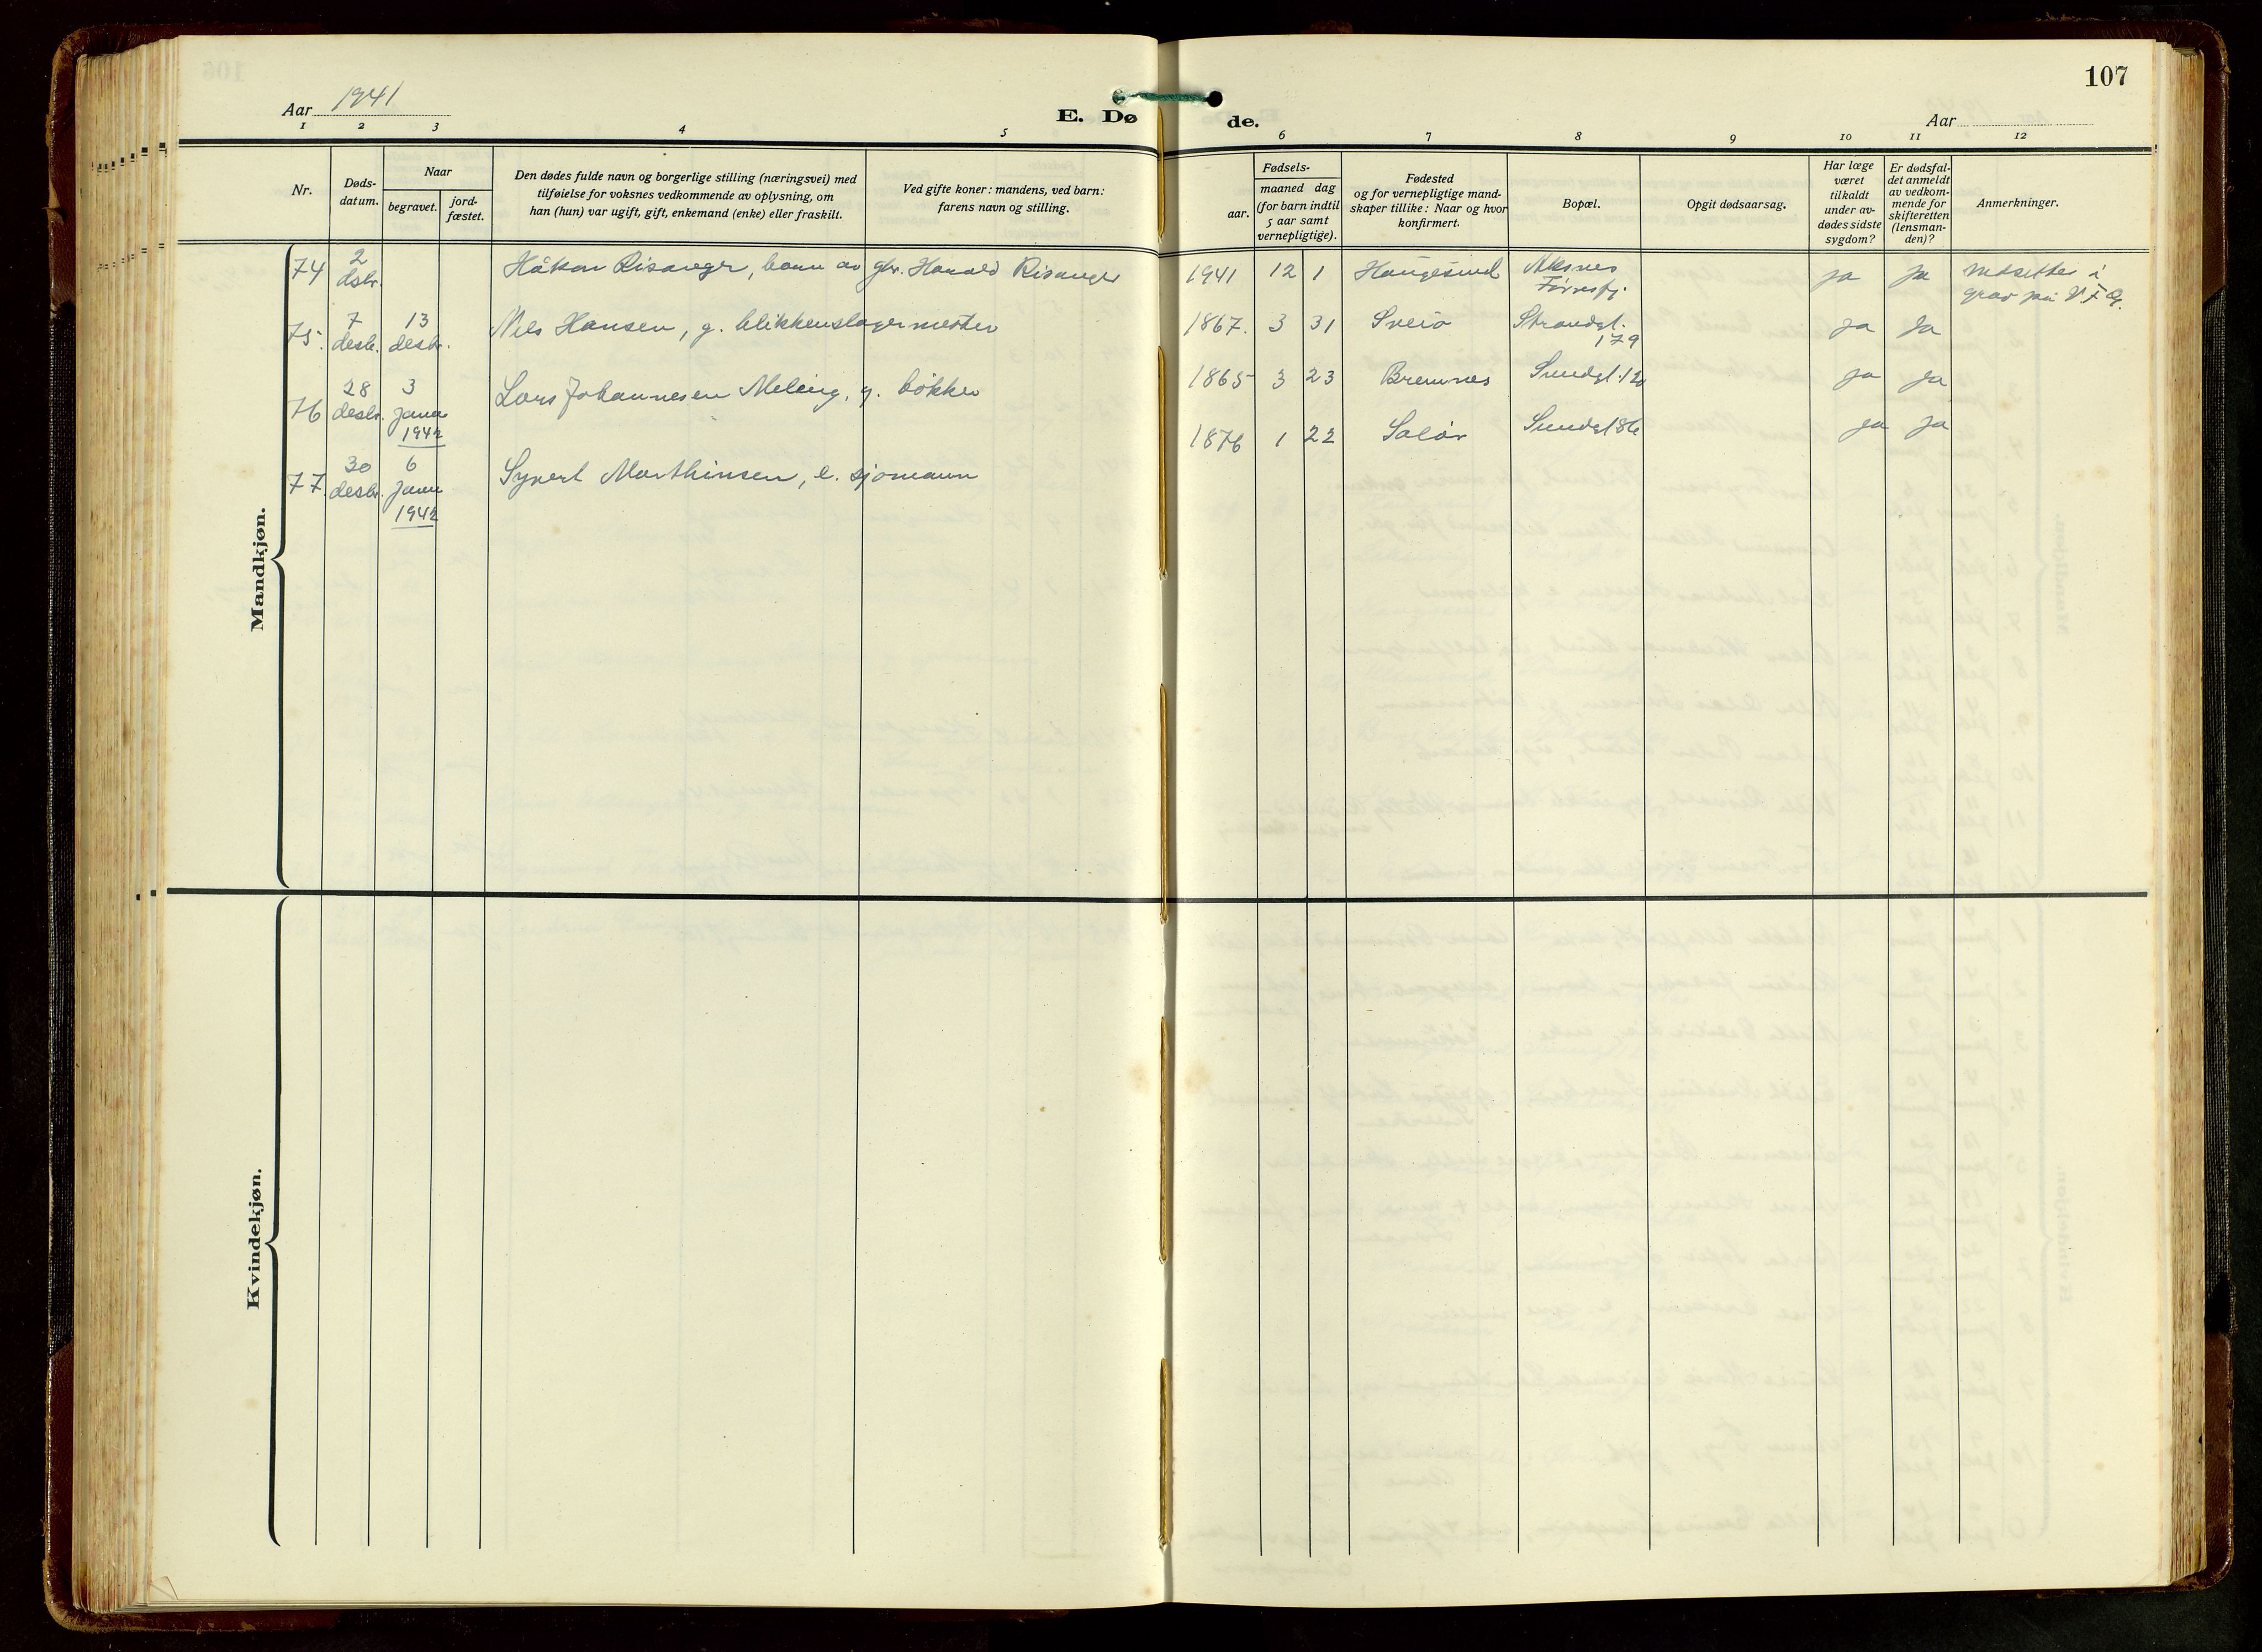 107
Aar 1941
E. Døde.
Aar
1 2 3 4 5 6 7 8 9 10 11 12
Nr.
Døds-
datum.
Naar
begravet.
jord-
fæstet.
Den dødes fulde navn og borgerlige stilling (næringsvei) med
tilføielse for voksnes vedkommende av oplysning, om
han (hun) var ugift, gift, enkemand (enke) eller fraskilt.
Ved gifte koner: mandens, ved barn:
farens navn og stilling.
Fødsels-
aar.
maaned dag
(for barn indtil
5 aar samt
vernepligtige).
Fødested
og for vernepligtige mand-
skaper tillike: Naar og hvor
konfirmert.
Bopæl.
Opgit dødsaarsag.
Har læge
været
tilkaldt
under av-
dødes sidste
sygdom?
Er dødsfal-
det anmeldt
av vedkom-
mende for
skifteretten
(lensman-
den)?
Anmerkninger.
Mandkjøn.
74 2 Håkon Risanger, barn av gbr. Harald Risanger 1941 12 1 Haugesund Aksnes ja ja nedsettes i
dsbr. Førresfj. grav på
75. 7 13 Nils Hansen, g. blikkenslagermester 1867. 3 31 Sveio Strandgt. ja ja
desbr. desbr. 179
76 28 3 Lars Johannesen Meling, g. bøkker 1865 3 23 Bremnes Sundgt. 120 ja ja
desbr. janu
1942
77. 30 6 Syvert Marthinsen, e. sjømann 1876 1 22 Solør Sundgt 86 ja ja
desbr. janu
1942
Kvindekjøn.